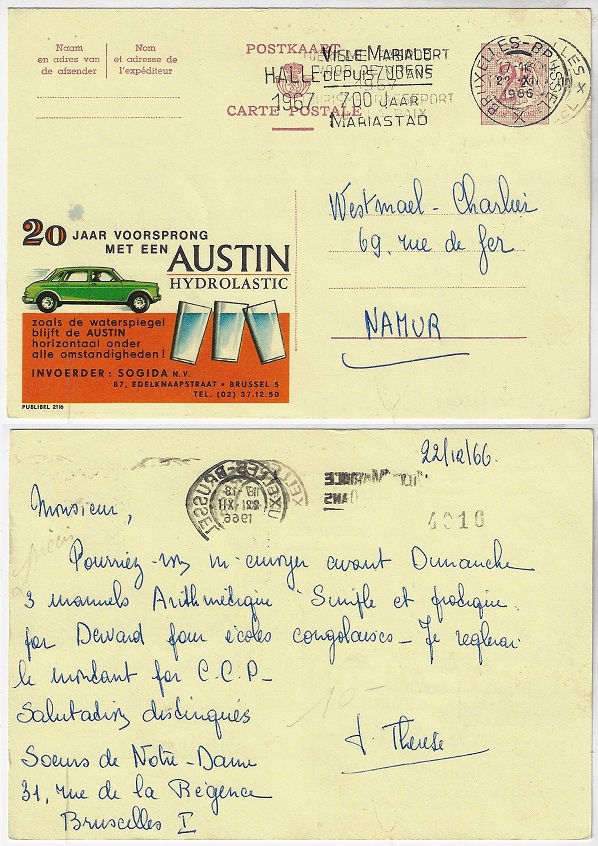 Naam
en adres van
de afzender
Nom
et adresse de
l'expéditeur
POSTKAART
CARTE POSTALE
VILLE MARIALE
HALLE DEPUIS 7 VANS
1967 700 JAAR
MARIASTAD
BRUXELLES-BRUSSEL
1966
20 JAAR VOORSPRONG
MET EEN AUSTIN
HYDROLASTIC
zoals de waterspiegel
blijft de AUSTIN
horizontaal onder
alle omstandigheden!
INVOERDER: SOGIDA N.V.
87, EDELKNAAPSTRAAT • BRUSSEL 5
TEL. (02) 37.12.50
PUBLIBEL 2116
Westmael-Charlier
69, rue de fer
NAMUR
22/12/66
4016
Monsieur,
Pourriez-vs m'envoyer avant Dimanche
3 manuels Arithmétique Simple et pratique
par Devard pour écoles congolaises - Je reglerai
le montant par C.C.P-
Salutations distinguées
10-
S. Therese
Soeurs de Notre-Dame
31, rue de la Régence
Bruxelles I